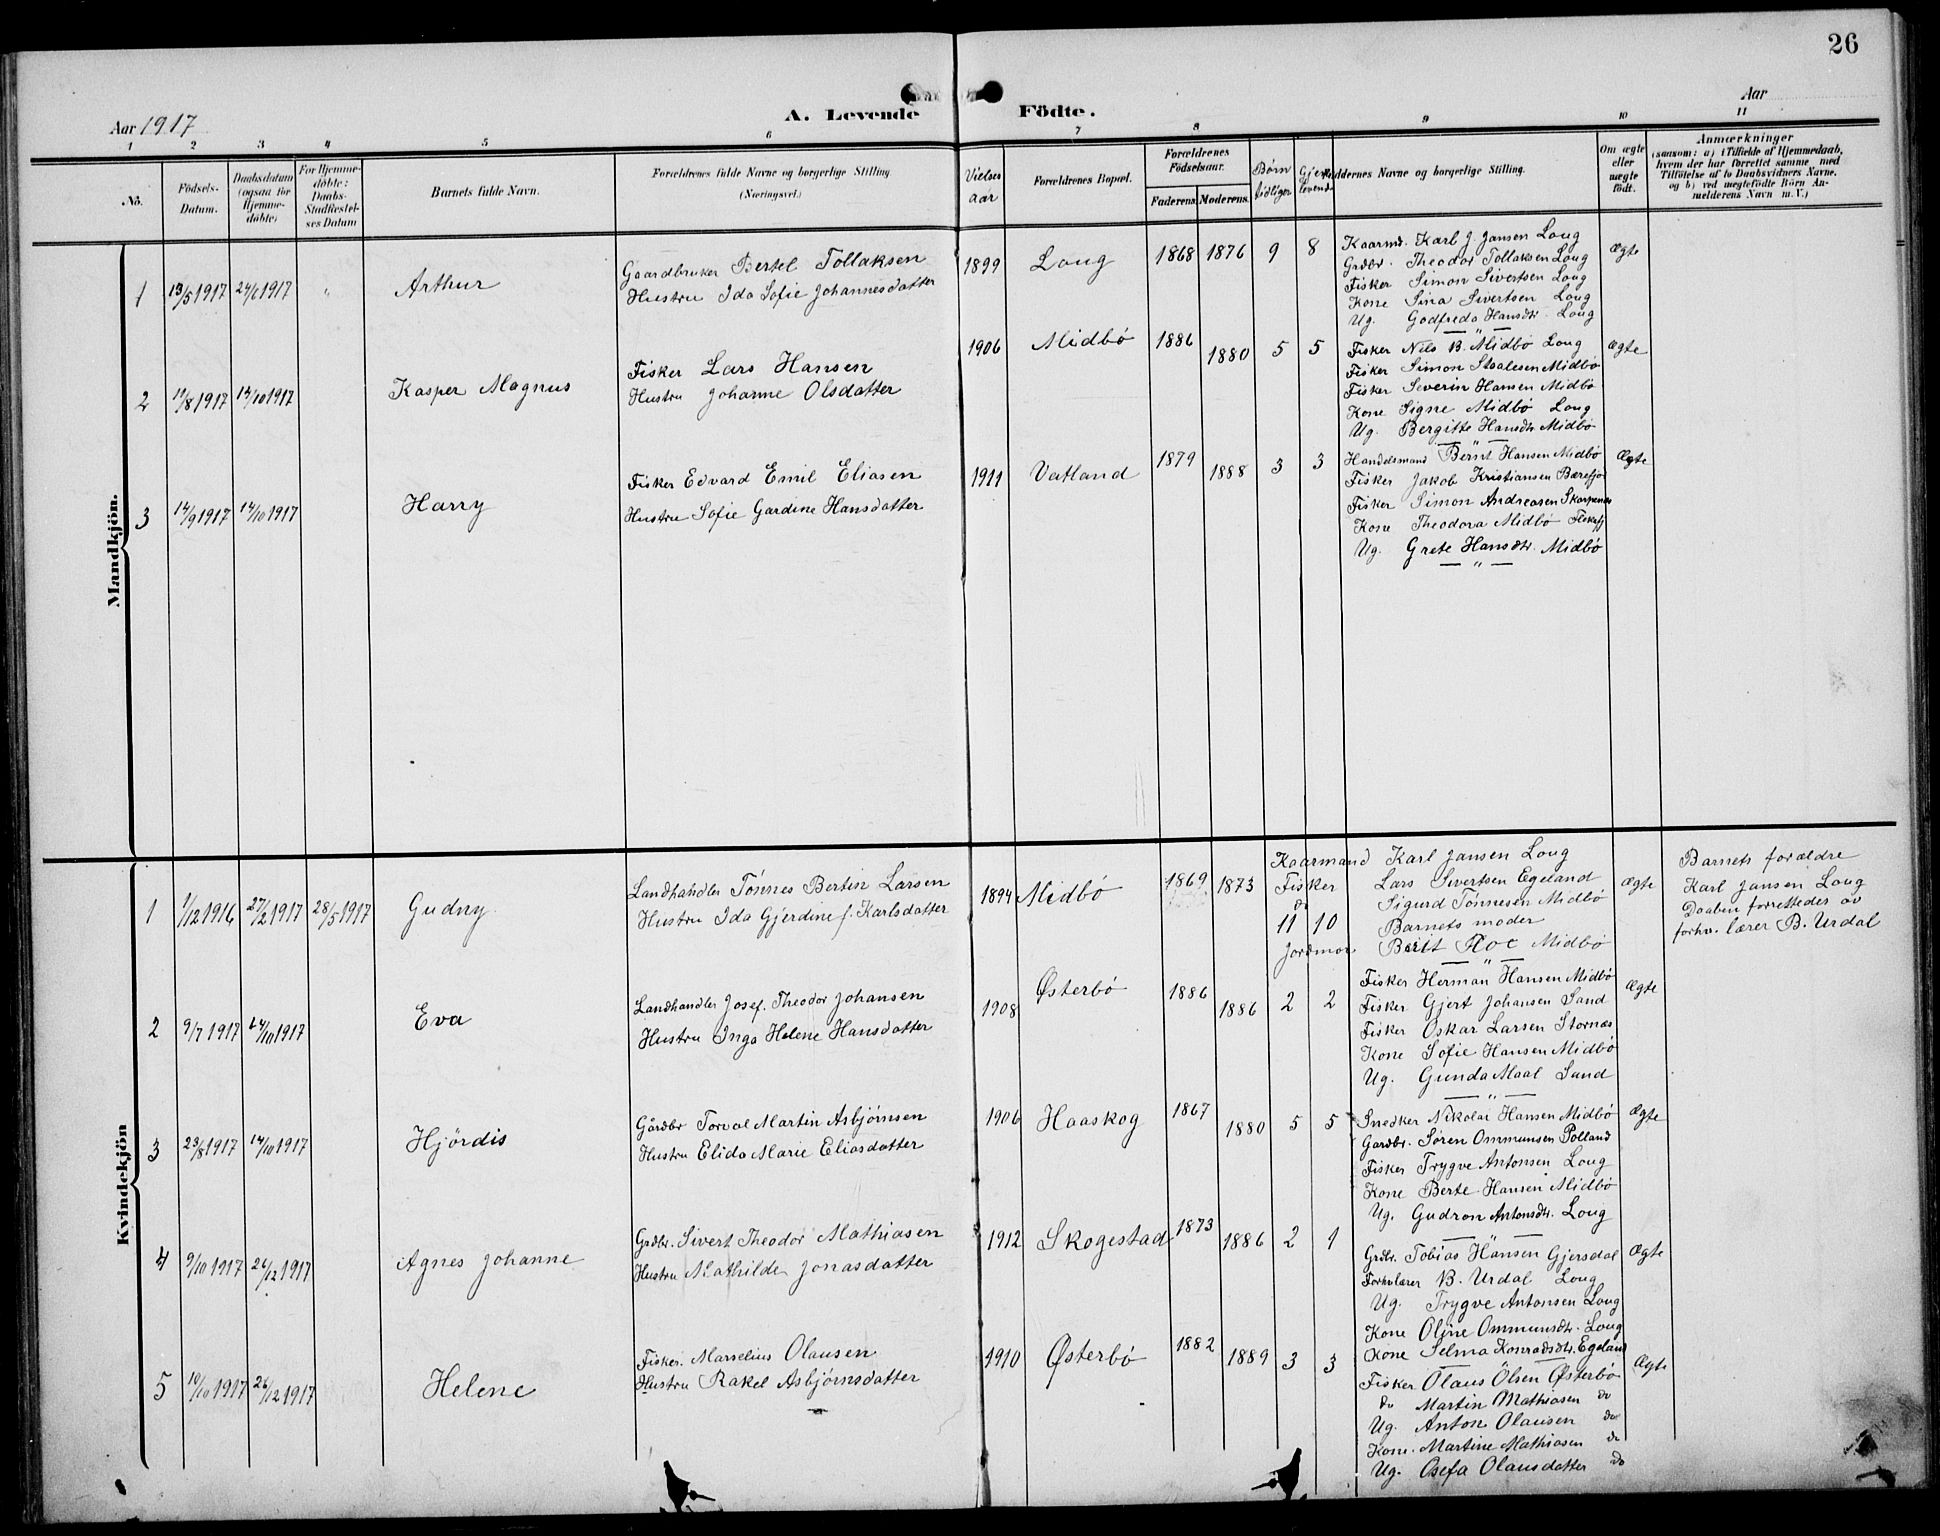 26
Aar 1917
A. Levende Födte.
Aar
1 2 3 4 5 6 7 8 9 10 11
No.
Födsels-Datum.
Daabsdatum (ogsaa for Hjemme-döbte)
For Hjemme-döbte: Daabs-Stadfæstel-ses Datum
Barnets fulde Navn.
Forældrenes fulde Navne og borgerlige Stilling (Næringsvei.)
Vielses aar
Forældrenes Bopæl.
Forældrenes Födselsaar.
Faderens. Moderens.
Børn tidliger
Gjen levende
Faddernes Navne og borgerlige Stilling.
Om ægte eller uægte födt.
Anmærkninger
(saasom: a) i Tilfælde af Hjemmedaab,
hvem der har forrettet samme med
Tilföielse af to Daabsvidners Navne.
og b) ved uægtefödte Börn An-
melderens Navn m. V.)
Mandkjön.
1 13/5 1917 24/6 1917 " Arthur
Gaardbruker Bertel Tollaksen
Hustru Ida Sofie Johannesdatter
1899 Loug 1868 1876 9 8
Kaarmd. Karl J. Jansen Loug
Grdbr. Theodor Tollaksen Loug
Fisker Simon Sivertsen Loug
Kone Sina Sivertsen Loug
Ug. Godfreda Hansdtr. Loug
Ægte
2 11/8 1917 14/10 1917 Kasper Magnus
Fisker Lars Hansen
Hustru Johanne Olsdatter
1906 Midbö 1886 1880 5 5
Fisker Nils B. Midbö Loug
Fisker Simon Staalesen Midbö
Fisker Severin Hansen Midbö
Kone Signe Midbö Loug
Ug. Bergitte Hansdtr Midbö
Ægte
3 14/9 1917 14/10 1917 Harry
Fisker Edvard Emil Eliasen
Hustru Sofie Gardine Hansdatter
1911 Vatland 1879 1888 3 3
Handelsmand Bernt Hansen Midbö
Fisker Jakob Kristiansen Bærefjord
Fisker Simon Andreasen Skarpenes
Kone Theodora Midbö Flekefj
Ug. Grete Hansdtr. Midbö
Ægte
Kvindekjön
1 1/12 1916 27/2 1917 28/5 1917 Gudny
Landhandler Tönnes Bertin Larsen
Hustru Ida Gjerdine f. Karlsdatter
1894 Midbö 1869 1873 11 10
Kaarmand Karl Jansen Loug
Fisker Lars Sivertsen Egeland
do Sigurd Tönnesen Midbö
Barnets moder
Jordmor Berit Floe Midbö
Ægte
Barnets forældre
Karl Jansen Loug
Daaben forrettedes av
forhv. lærer B. Urdal
2 9/7 1917 14/10 1917 Eva
Landhandler Josef Theodor Johansen
Hustru Inga Helene Hansdatter
1908 Østerbö 1886 1886 2 2
Fisker Herman Hansen Midbö
Fisker Gjert Johansen Sand
Fisker Oskar Larsen Stornæs
Kone Sofie Hansen Midbö
Ug. Gunda Maal Sand
Ægte
3 23/8 1917 14/10 1917 Hjördis
Gårdbr Torval Martin Asbjörnsen
Hustru Elida Marie Eliasdatter
1906 Haaskog 1867 1880 5 5
Snedker Nikolai Hansen Midbö
Gardbr. Sören Ommunsen Polland
Fisker Trygve Antonsen Loug
Kone Berte Hansen Midbö
Ug. Gudron Antonsdtr. Loug
Ægte
4 9/10 1917 26/12 1917 Agnes Johanne
Grdbr. Sivert Theodor Mathiasen
Hustru Mathilde Jonasdatter
1912 Skogestad 1873 1886 2 1
Grdbr. Tobias Hansen Gjersdal
Forhv lærer B. Urdal Loug
Ug. Trygve Antonsen Loug
Kone Oline Ommunsdtr. Loug
Kone Selma Konradsdtr. Egeland
Ægte
5 10/10 1917 26/12 1917 Helene
Fisker. Marselius Olausen
Hustru Rakel Asbjörnsdatter
1910 Østerbö 1882 1889 3 3
Fisker Olaus Olsen Østerbö
do Martin Mathiasen do
Ug. Anton Olausen do
Kone Martine Mathiasen do
Ug. Osefa Olausdatter do
Ægte